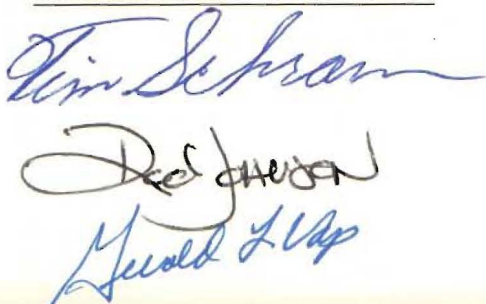 Tim Schram
Rod Johnson
Gerold L Vap